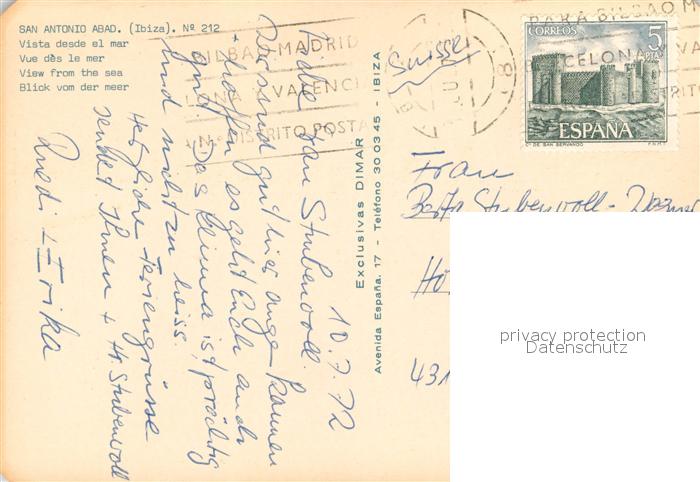 SAN ANTONIO ABAD. (Ibiza). Nº 212
Vista desde el mar
Vue dès le mer
View from the sea
Blick vom der meer
BILBAO MADRID
VALENCI
DISTRITO POSTA
PARA BILBAO M
BARCELONA
Suisse
CORREOS
5
PTAS
ESPAÑA
Cº DE SAN SERVANDO
F.N.M.T.
Exclusivas DIMAR
Avenida España, 17 - Teléfono 30 03 45 - IBIZA
10.7.72
Frau Stubenvoll.
Wir sind gut hier angekommen
+ hoffen es geht Euch auch
gut. Das Klima ist prächtig
und nicht zu heiss.
Herzliche Feriengrüsse
sendet Ihnen + Hr. Stubenvoll
Ruedi + Erika
Frau
Berta Stubenvoll -
431
privacy protection
Datenschutz